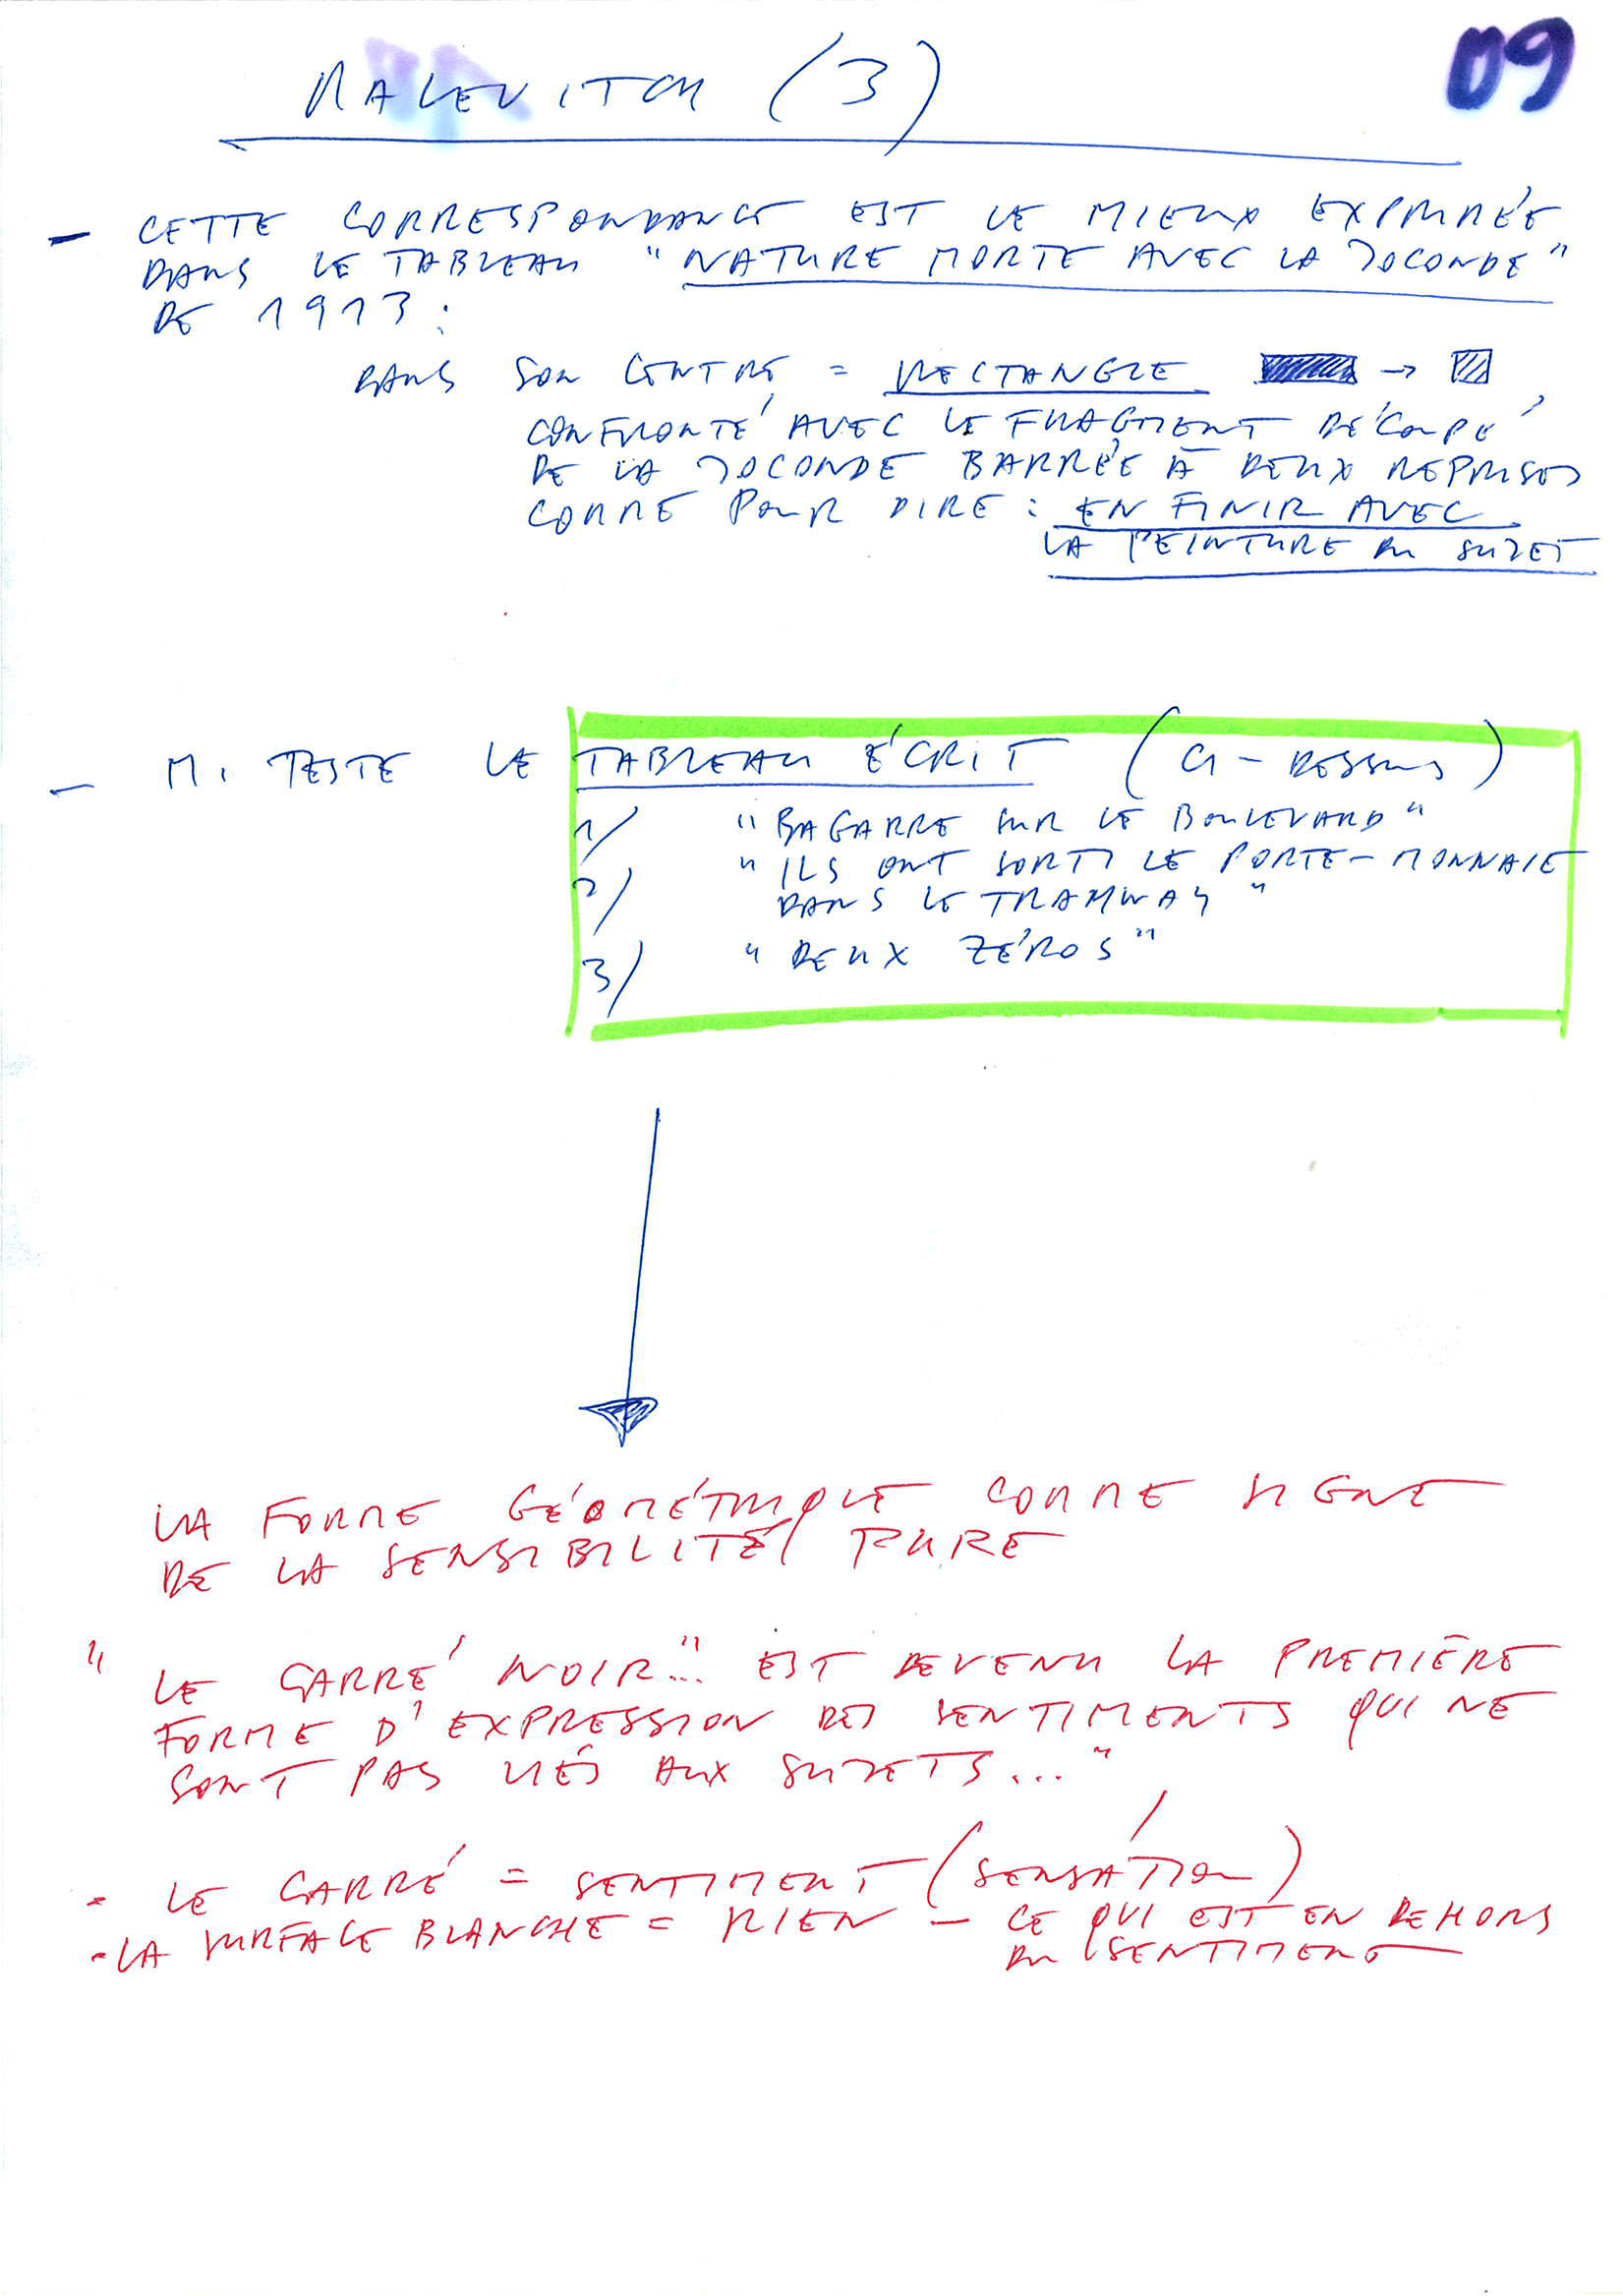 09
MALEVITCH (3)
- CETTE CORRESPONDANCE EST LE MIEUX EXPRIMÉE
DANS LE TABLEAU "NATURE MORTE AVEC LA JOCONDE"
DE 1913 :
DANS SON CENTRE = RECTANGLE →
CONFRONTÉ AVEC LE FRAGMENT DÉCOUPÉ
DE LA JOCONDE BARRÉE À DEUX REPRISES
COMME POUR DIRE : EN FINIR AVEC
LA PEINTURE DU SUJET
- M. TESTE LE TABLEAU ÉCRIT (CI-DESSUS)
1/ "BAGARRE SUR LE BOULEVARD"
2/ "ILS ONT SORTI LE PORTE-MONNAIE
DANS LE TRAMWAY"
3/ "DEUX ZÉROS"
LA FORME GÉOMÉTRIQUE COMME SIGNE
DE LA SENSIBILITÉ PURE
" LE CARRÉ NOIR..." EST DEVENU LA PREMIÈRE
FORME D'EXPRESSION DES SENTIMENTS QUI NE
SONT PAS LIÉS AUX SUJETS..."
- LE CARRÉ = SENTIMENT (SENSATION)
- LA SURFACE BLANCHE = RIEN - CE QUI EST EN DEHORS
DU SENTIMENT